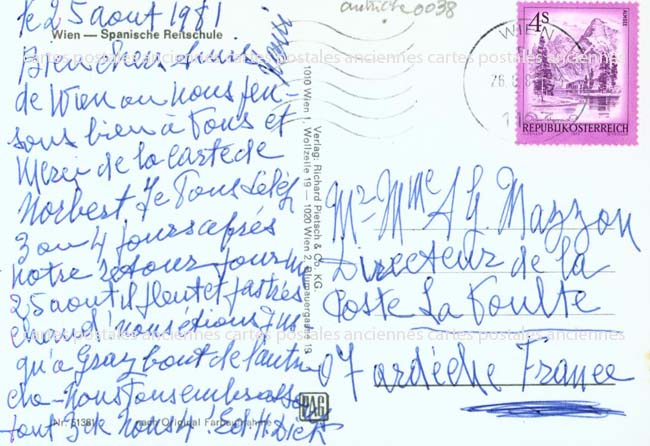 le 25 aout 1981
autriche 0038
Wien — Spanische Reitschule
cartes postales anciennes cartes postales anciennes cartes postales anciennes
Bien chers Amis
de Wien ou nous pen-
sons bien à Vous et
Merci de la carte de
Norbert Je Vous téléf
3 ou 4 jours après
notre retour
25 aout il pleut et
encore! nous étions jus
qu'a bout de l'autri
che - Nous Vous embrassons
tout
Nr. 51381 nach Original Farbaufnahme
Verlag: Richard Pietsch & Co. KG.
1010 Wien 1, Wollzeile 19 — 1020 Wien 2, Blumauergasse 19
PAG
WIEN
26.8.8
4S
REPUBLIK ÖSTERREICH
Mr - Mme A G. Mazzon
Directeur de la
Poste La Voulte
07 ardèche France